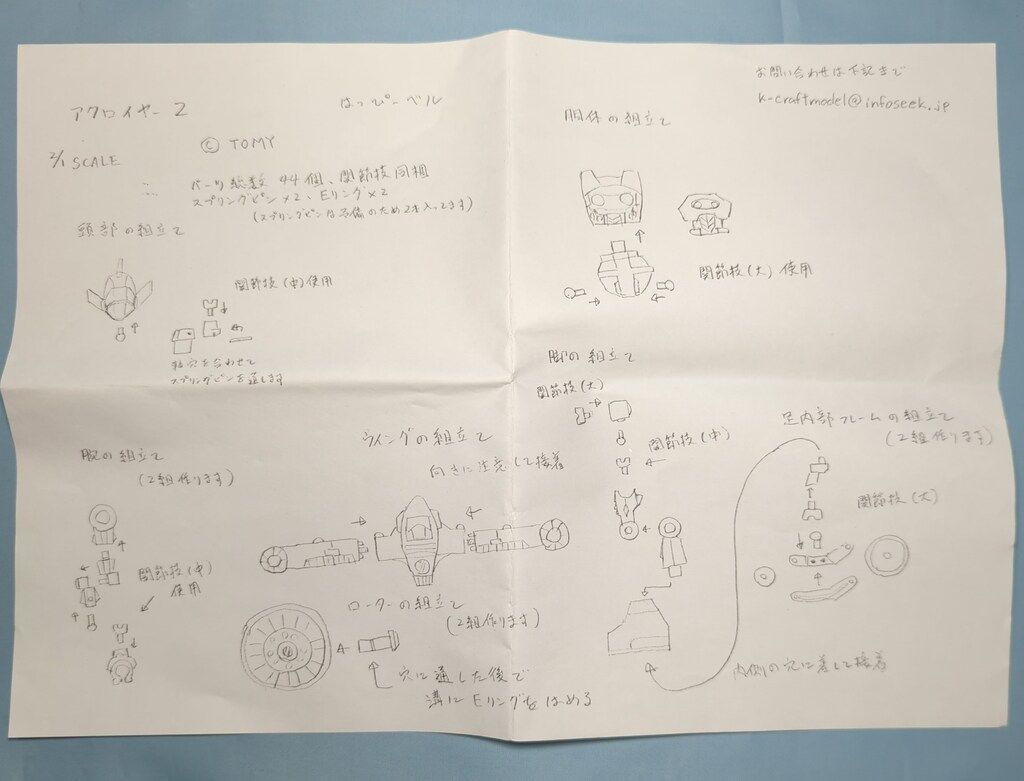 アクロイヤー2
はっぴーベル
© TOMY
2/1 SCALE
パーツ総数 44個、関節技同梱
スプリングピン×2、Eリング×2
(スプリングピンは予備のため2本入ってます)
頭部の組立て
関節技(中)使用
穴を合わせて
スプリングピンを通します
お問い合わせは下記まで
k-craftmodel@infoseek.jp
胴体の組立て
関節技(大)使用
脚の組立て
関節技(大)
関節技(中)
足内部フレームの組立て
(2組作ります)
関節技(大)
内側の穴に差して接着
腕の組立て
(2組作ります)
関節技(中)
使用
ウイングの組立て
向きに注意して接着
ローターの組立て
(2組作ります)
穴に通した後で
溝にEリングをはめる